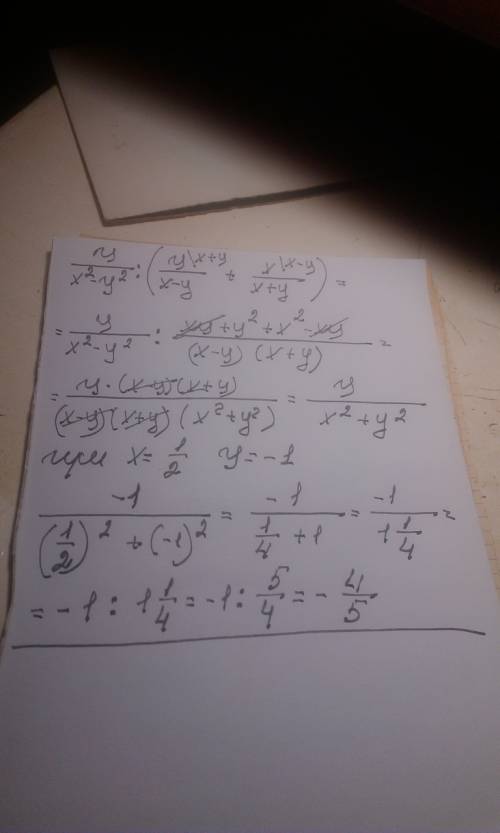 y/(x²-y²) : (y\x+y/(x-y) + x\x-y/(x+y)) =
= y/(x²-y²) : (xy+y²+x²-xy)/((x-y)(x+y)) =
= y·(x-y)(x+y)/((x-y)(x+y)(x²+y²)) = y/(x²+y²)
при x=1/2 y=-1
-1/((1/2)²+(-1)²) = -1/(1/4+1) = -1/(1 1/4) =
= -1 : 1 1/4 = -1 : 5/4 = - 4/5